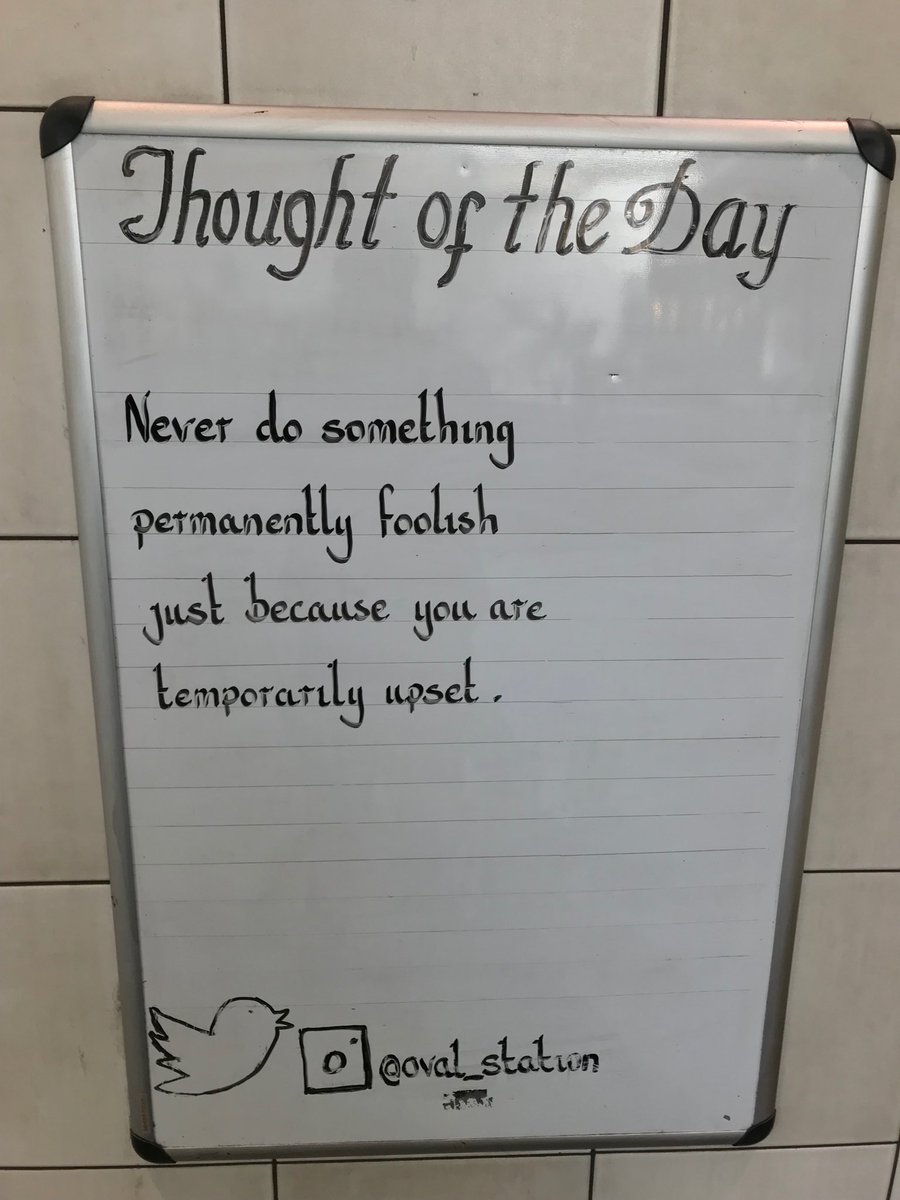 Thought of the Day
Never do something
permanently foolish
just because you are
temporarily upset.
@oval_station